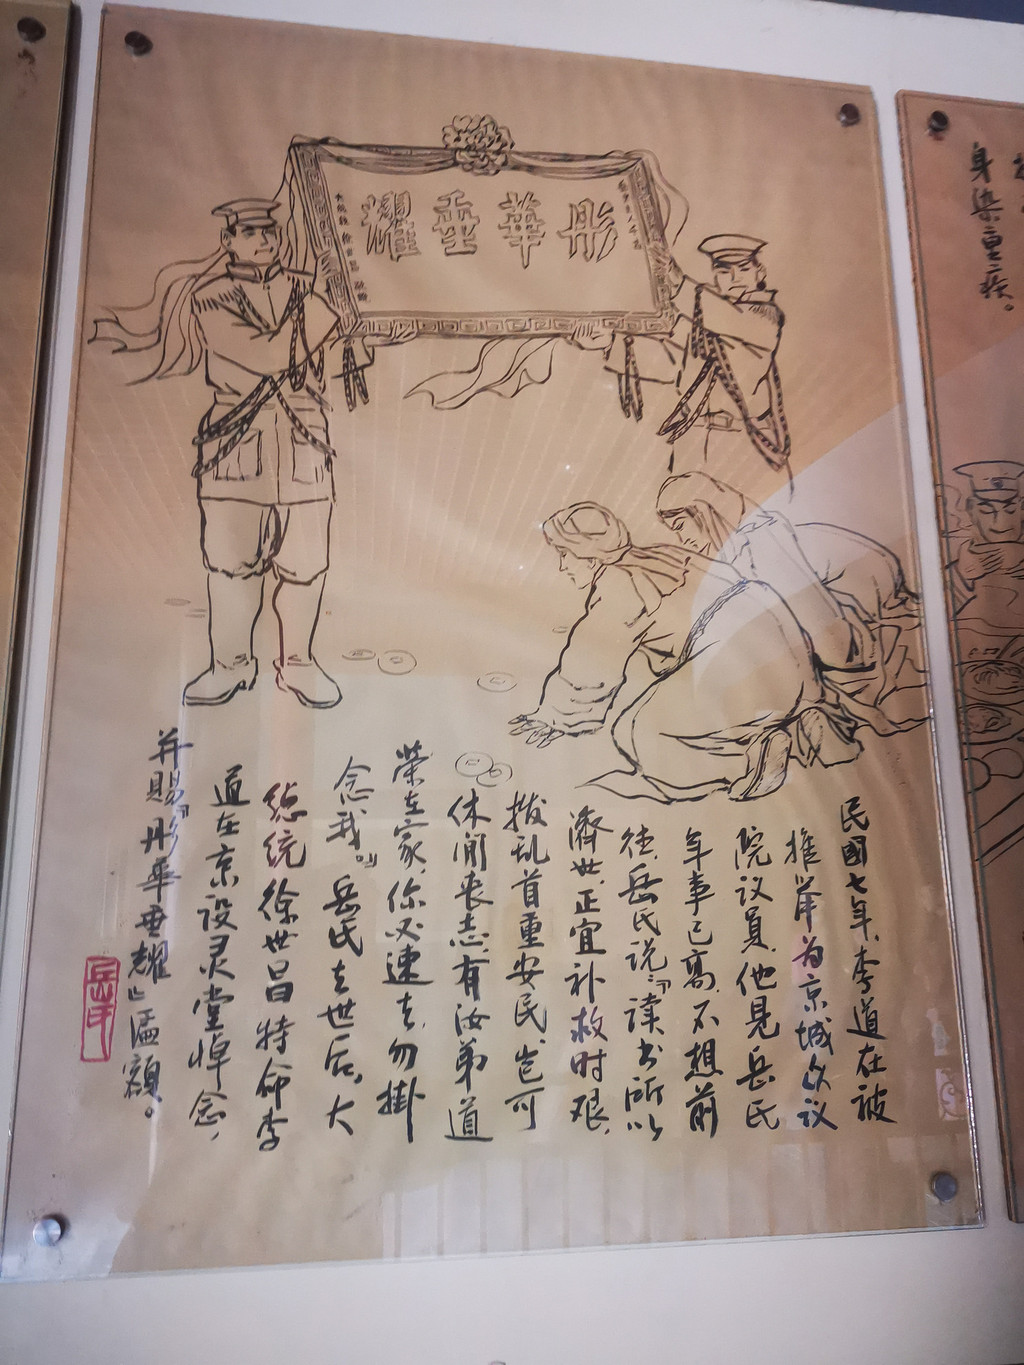 彤華垂耀
民國七年，李道在被
推举为京城众议
院议员，他見岳氏
年事已高，不想前
往，岳氏说：「读书所以
濟世，正宜补救时艰，
拨乱首重安民，岂可
休閒丧志，有汝弟道
荣在家，你必速去，勿掛
念我。」岳氏去世后，大
总统徐世昌特命李
道在京设灵堂悼念，
并赐「彤華垂耀」匾额。
身染重疾。